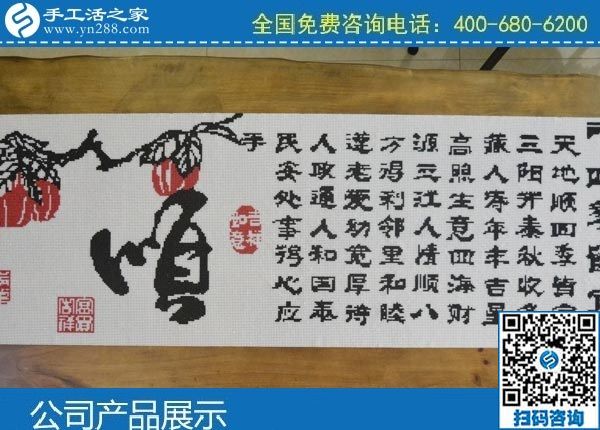 手工活之家
www.yn288.com
全国免费咨询电话：400-680-6200
天地顺四季皆宜
三阳开泰秋收冬
藏人寿年丰吉星
高照生意四海财
源三江人情顺八
方得利邻里和睦
遵老爱幼宽厚待
人政通人和国泰
民安处事称心应
手
吉祥如意
顺
富贵吉祥
公司产品展示
扫码咨询